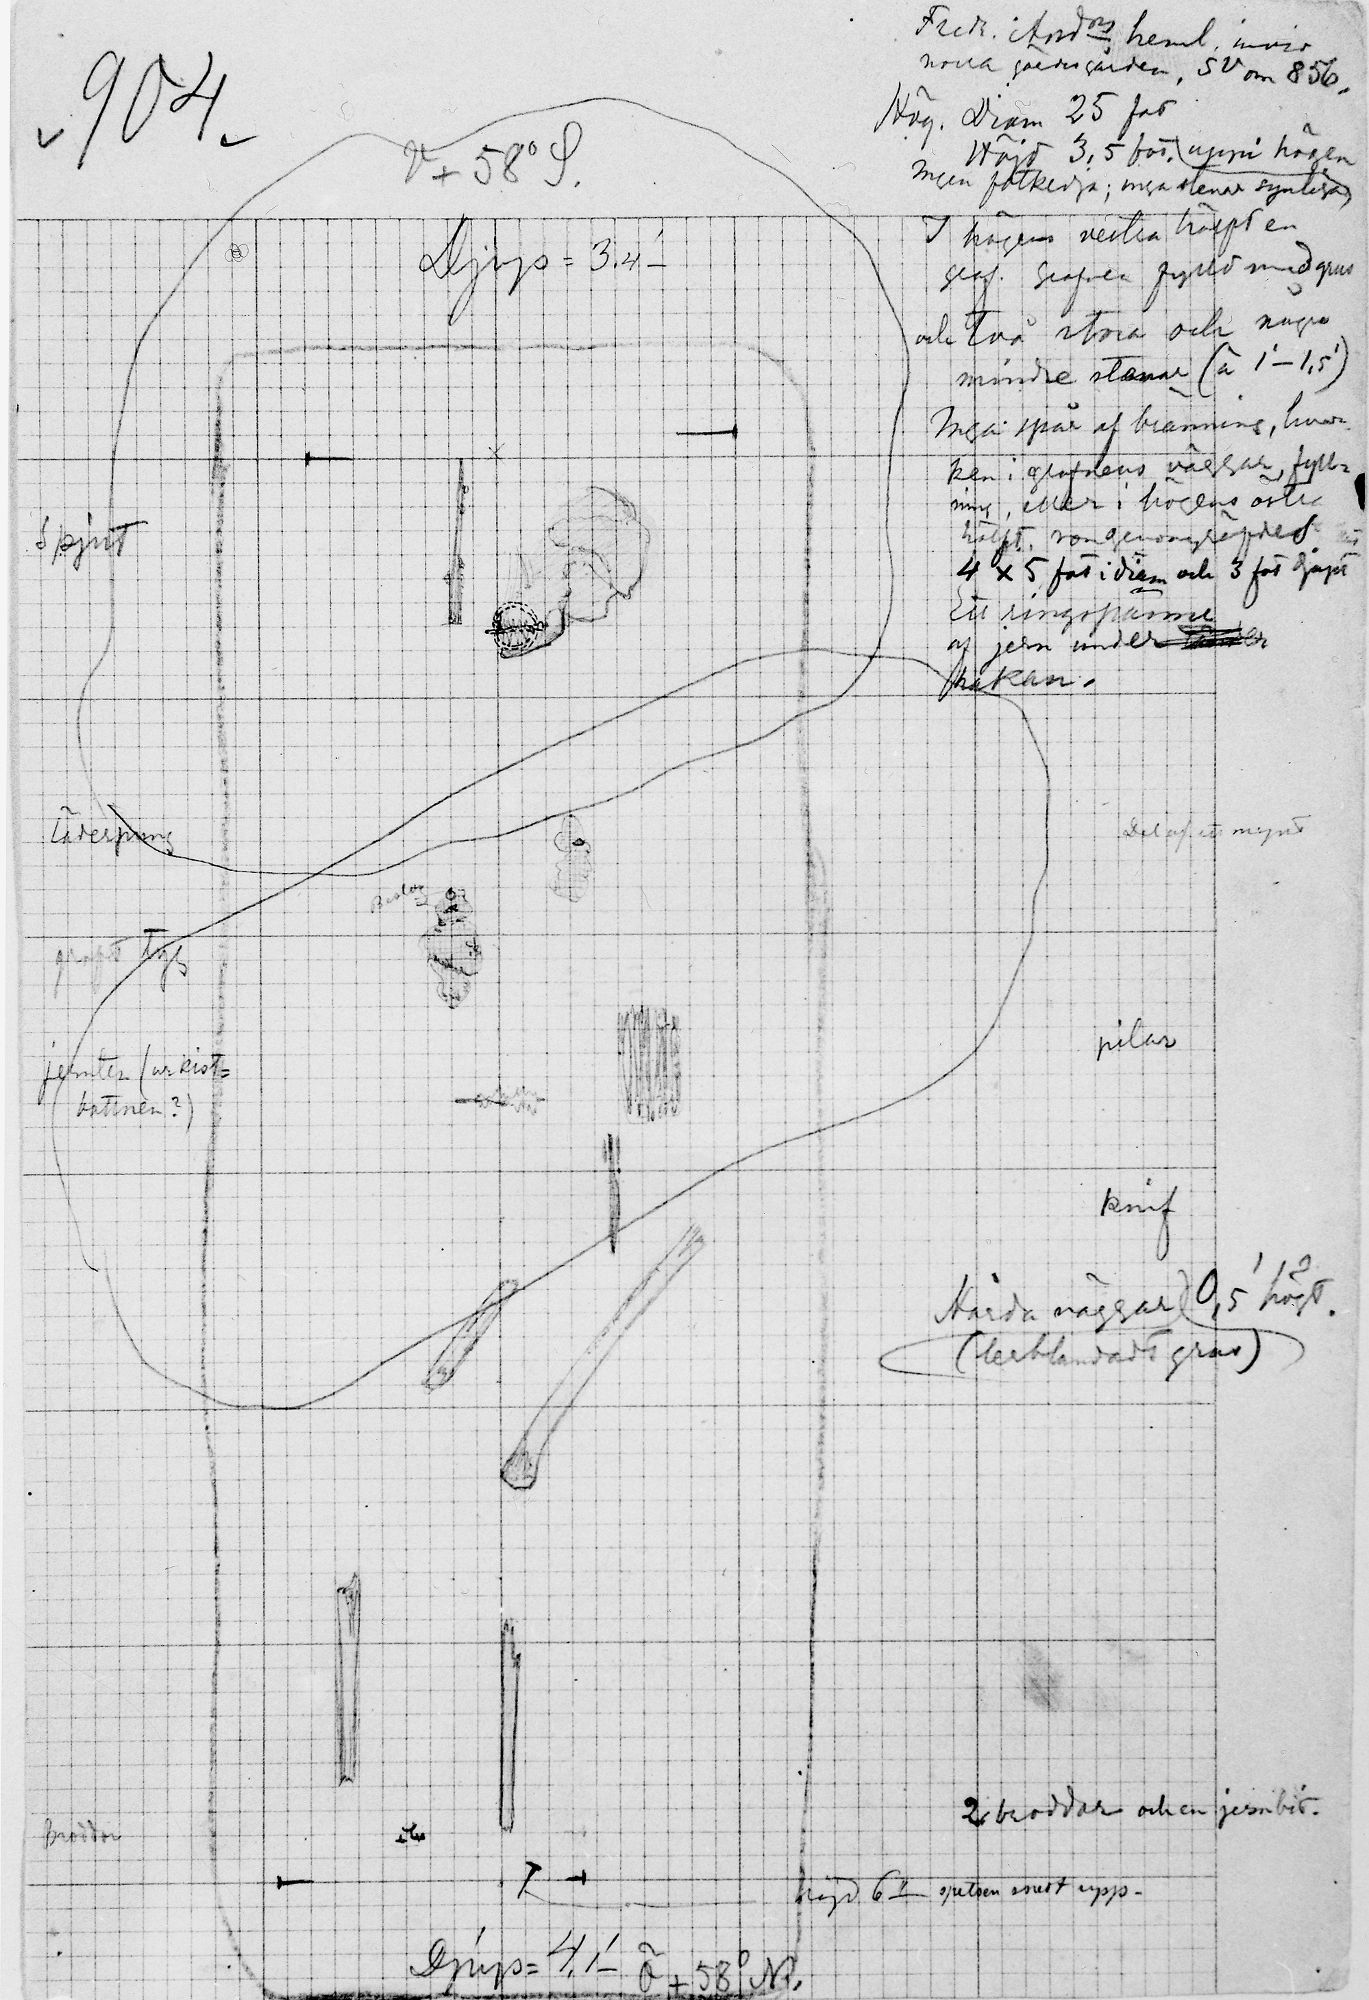 904
V + 58° S.
Djup = 3.4'
Fredr. And:ns heml. invid
norra gärdesgården, SV om 856.
Hög. Diam 25 fot
Höjd 3,5 fot. uppi högen
ingen fotkedja; inga stenar synliga
I högens vestra hälft en
graf. Grafven fylld med grus
och två stora och några
mindre stenar (à 1'–1,5')
Inga spår af bränning, hvar-
ken i grafvens väggar, fyll-
ning, eller i högens östra
hälft, som genomgräfdes
4 x 5 fot i diam och 3 fot djupt
Ett ringspänne
af jern under
hakan.
Spjut
Läderpung
Del af ett mynt
Beslag
groft tyg
jernten (ur kist-
bottnen?)
pilar
knif
Hårda väggar 0,5' högt.
(lerblandadt grus)
Broddar
2 broddar och en jernbit.
höjd 6" spetsen rest upp.
Djup = 4.1'
Ö + 58° N.